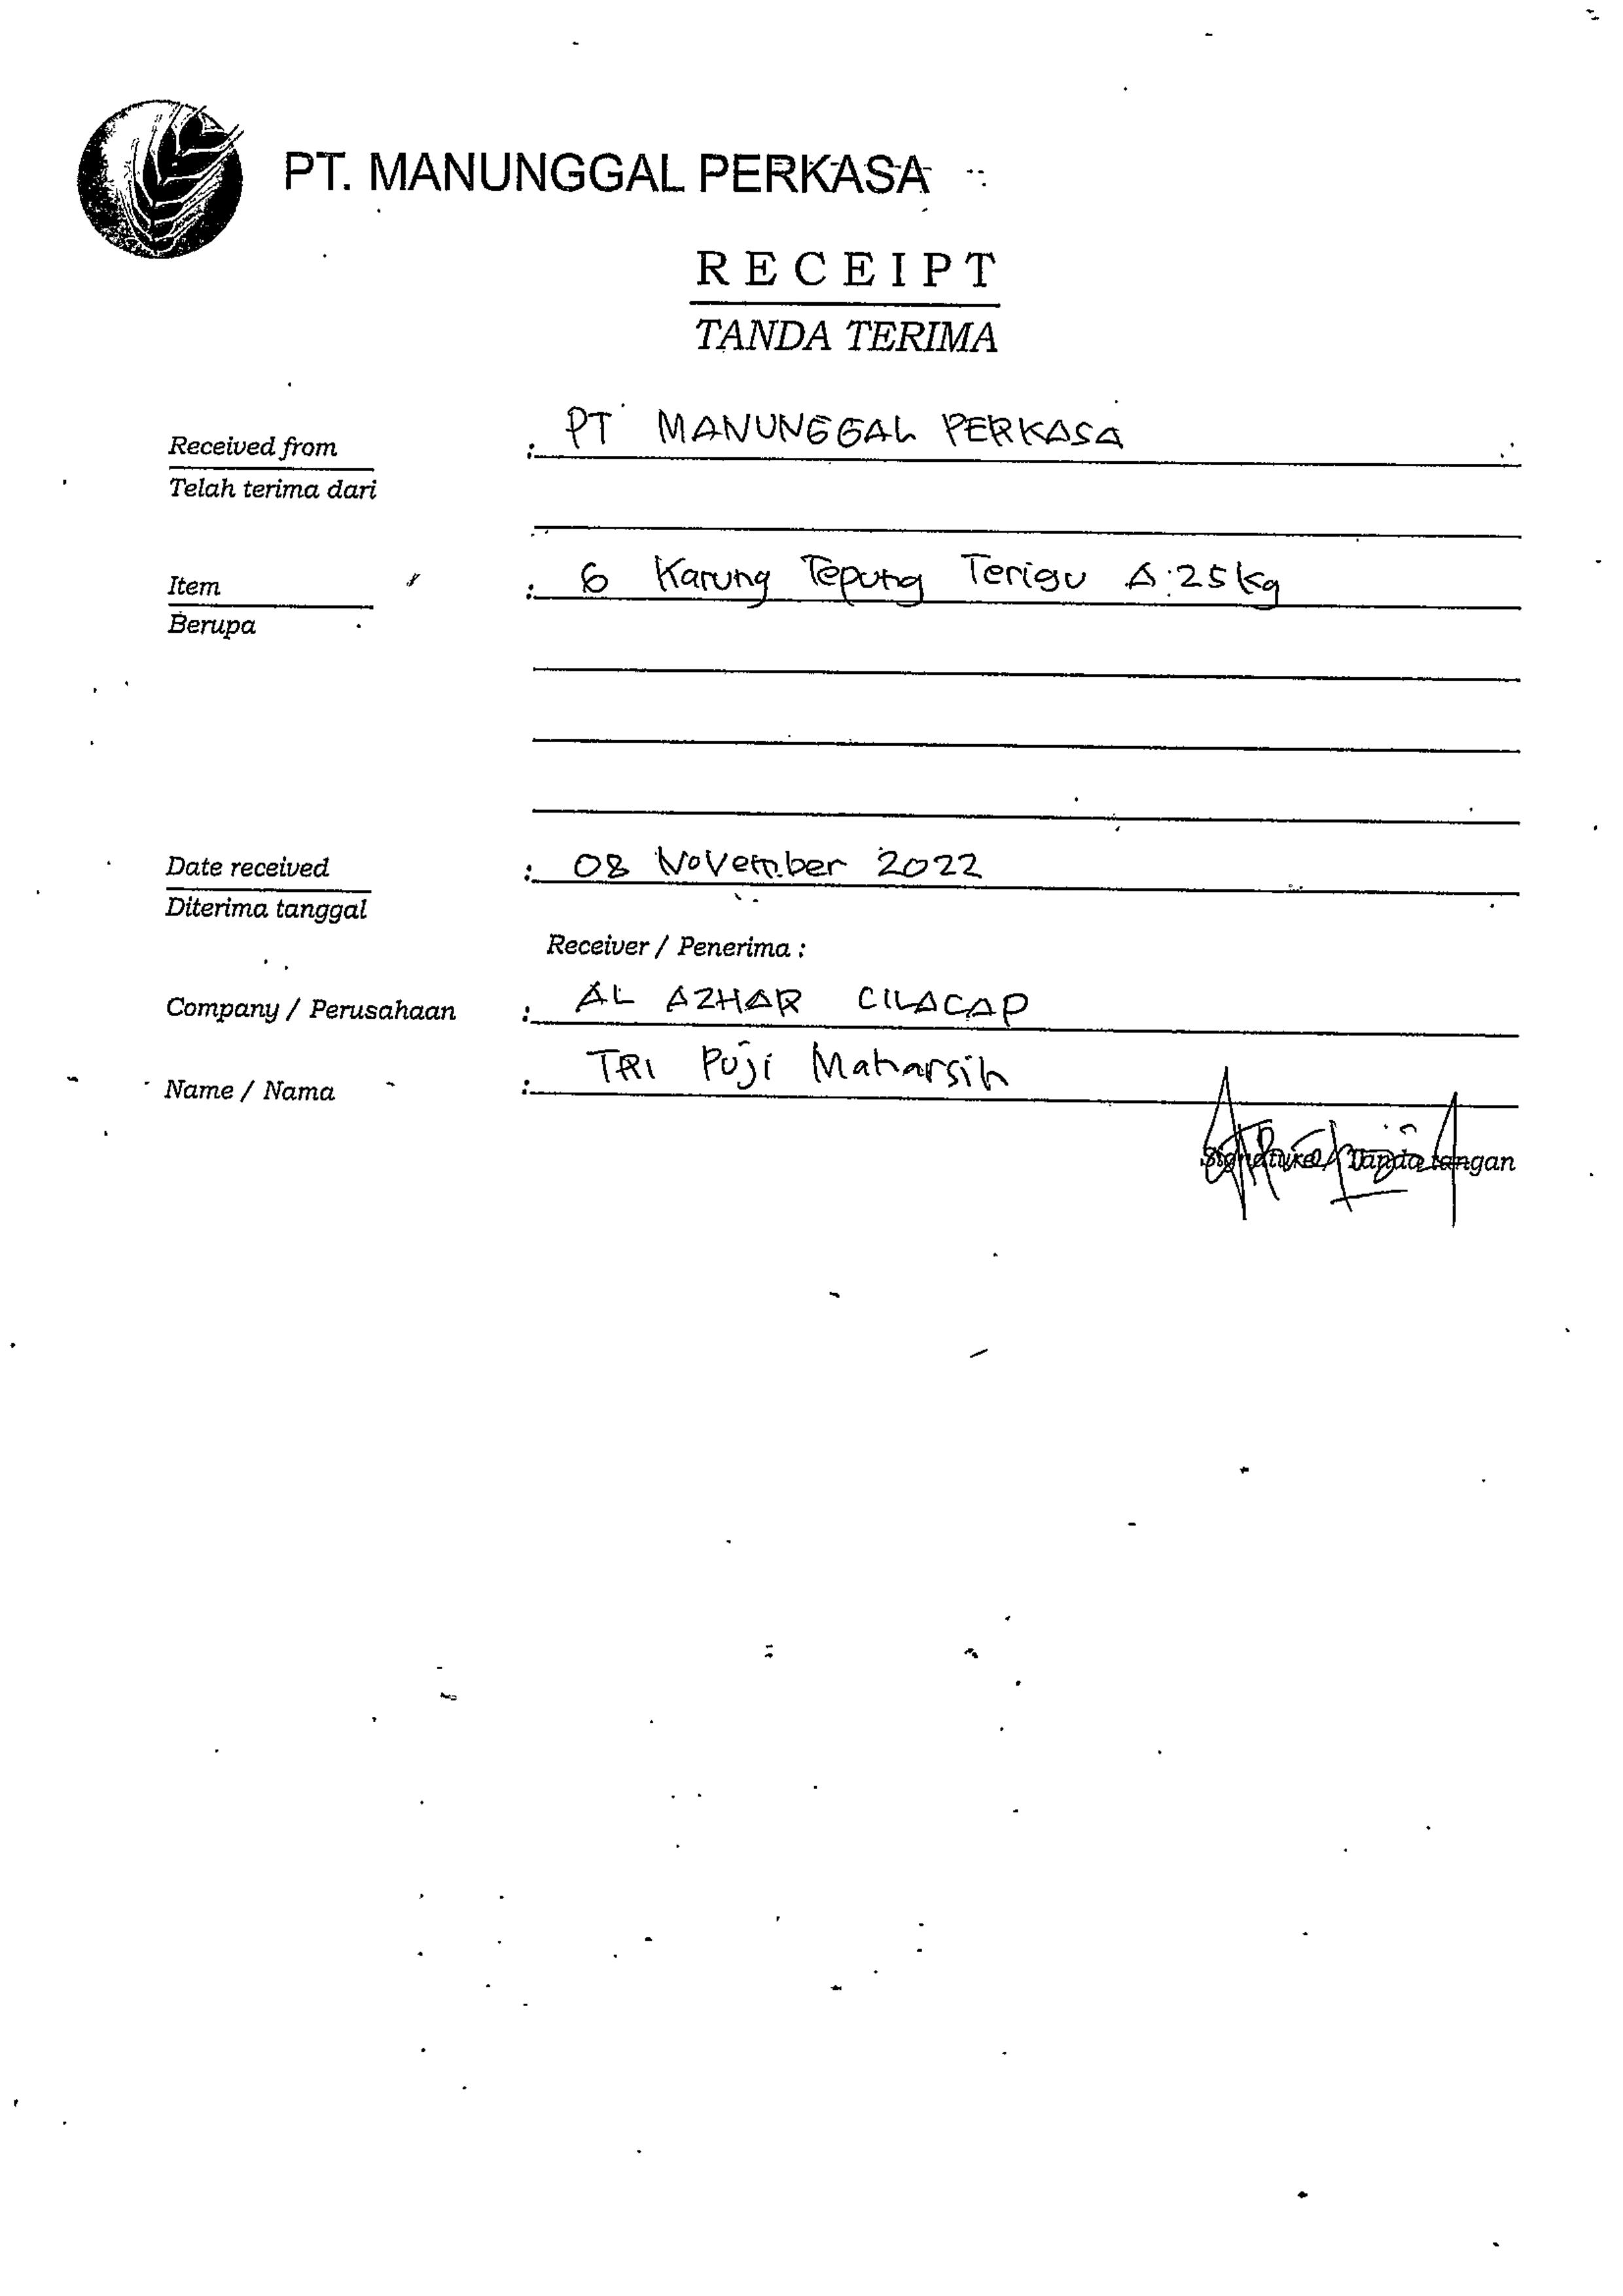 PT. MANUNGGAL PERKASA
RECEIPT
TANDA TERIMA
Received from : PT MANUNGGAL PERKASA
Telah terima dari
Item : 6 Karung Tepung Terigu A:25kg
Berupa
Date received : 08 November 2022
Diterima tanggal
Receiver / Penerima :
Company / Perusahaan : AL AZHAR CILACAP
Name / Nama : TRI Puji Maharsih
Signature / Tanda tangan